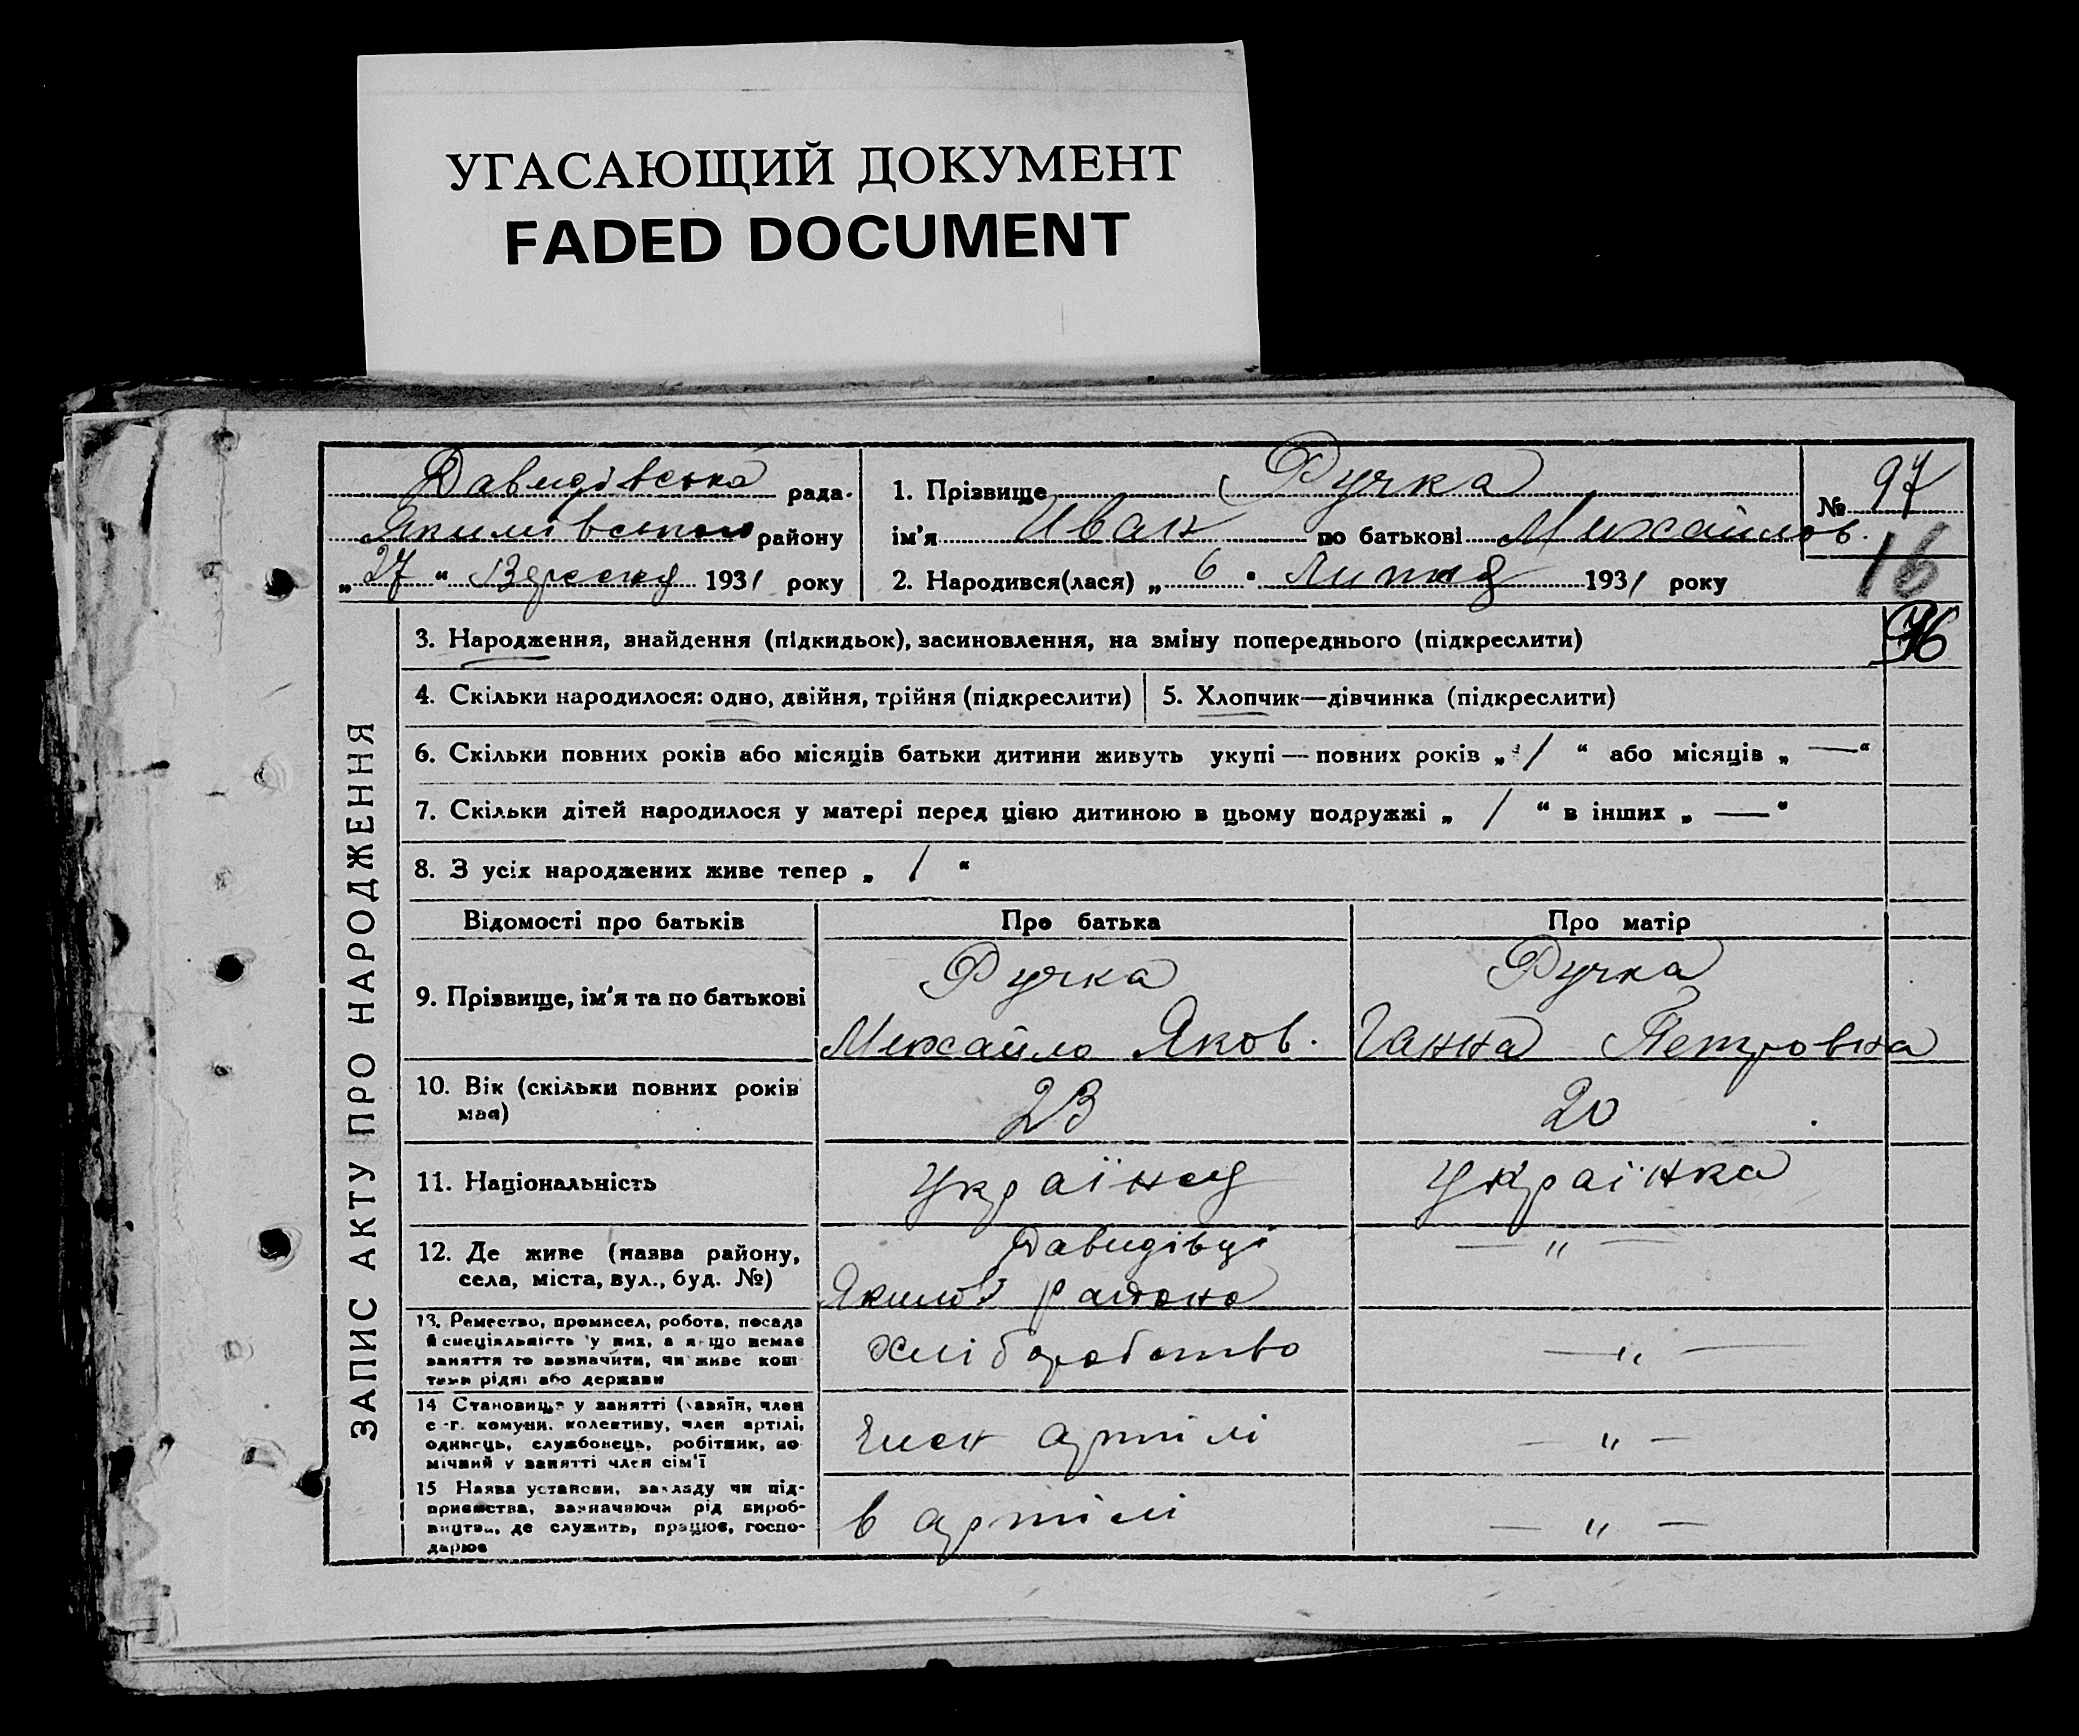 УГАСАЮЩИЙ ДОКУМЕНТ
FADED DOCUMENT
Давидівська рада.
Якимівського району
„27“ Вересня 1931 року
1. Прізвище Ручка
ім'я Иван по батькові Михайлов.
2. Народився(лася) „6 Липня 1931 року
№ 97
16
ЗАПИС АКТУ ПРО НАРОДЖЕННЯ
3. Народження, знайдення (підкидьок), засиновлення, на зміну попереднього (підкреслити)
4. Скільки народилося: одно, двійня, трійня (підкреслити)
5. Хлопчик—дівчинка (підкреслити)
6. Скільки повних років або місяців батьки дитини живуть укупі — повних років „ / “ або місяців „ — “
7. Скільки дітей народилося у матері перед цією дитиною в цьому подружжі „ / “ в інших „ — “
8. З усіх народжених живе тепер „ / “
Відомості про батьків
Про батька
Про матір
9. Прізвище, ім'я та по батькові
Ручка
Михайло Яков.
Ручка
Ганна Петровна
10. Вік (скільки повних років
має)
23
20
11. Національність
Українец
Українка
12. Де живе (назва району,
села, міста, вул., буд. №)
Давидівці
Якимов району
— „ —
13. Ремество, промисел, робота, посада
й спеціяльність у них, а якщо немає
заняття то зазначити, чи живе кош
тами рідні або держави
Хліборобство
— „ —
14 Становище у занятті (хазяїн, член
с -г. комуни, колективу, член артілі,
одинець, службовець, робітник, по
мічний у занятті член сім'ї
Член артілі
— „ —
15 Назва установи, закладу чи під-
приємства, зазначаючи рід вироб-
ництва, де служить, працює, госпо-
дарює
в артілі
— „ —